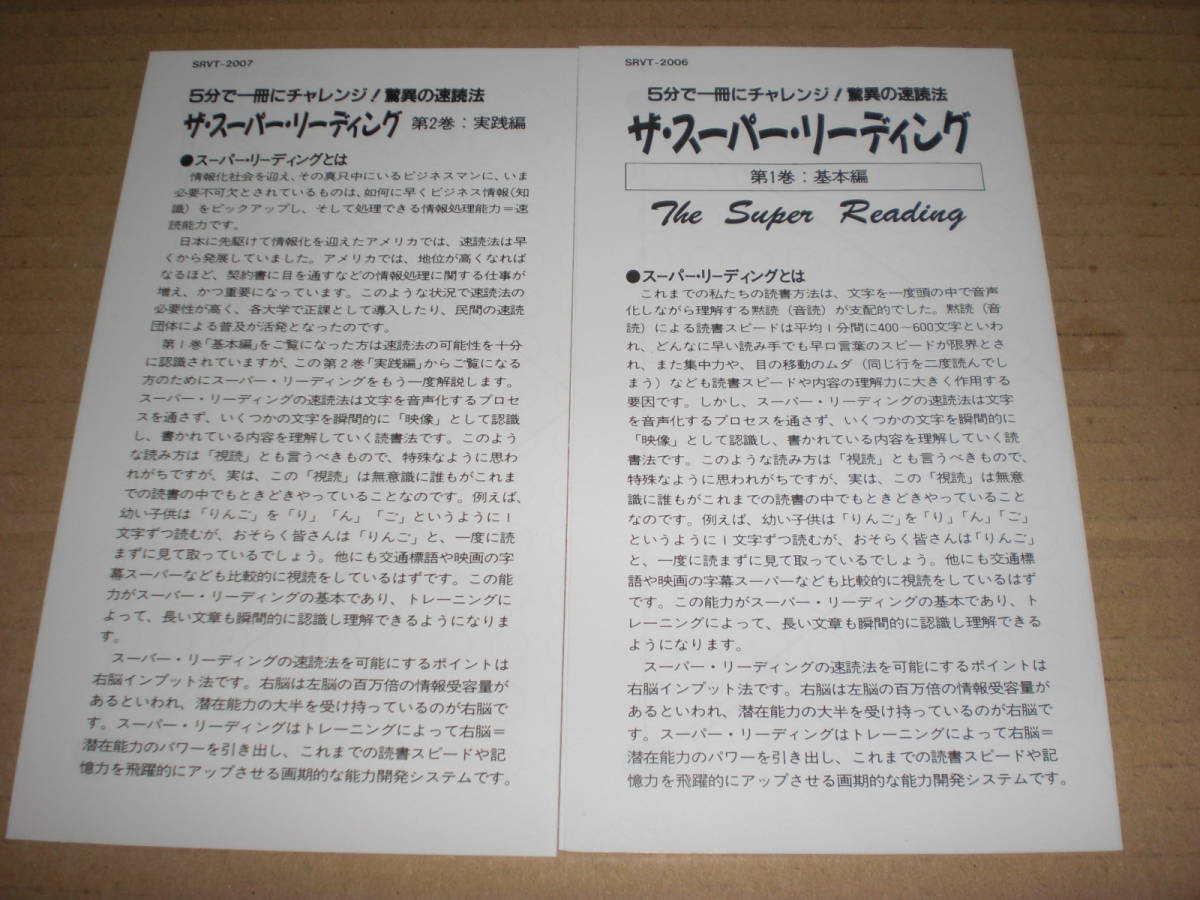 SRVT-2007
5分で一冊にチャレンジ!驚異の速読法
ザ・スーパー・リーディング 第2巻:実践編
●スーパー・リーディングとは
情報化社会を迎え、その真只中にいるビジネスマンに、いま
必要不可欠とされているものは、如何に早くビジネス情報(知
識)をピックアップし、そして処理できる情報処理能力=速
読能力です。
日本に先駆けて情報化を迎えたアメリカでは、速読法は早
くから発展していました。アメリカでは、地位が高くなれば
なるほど、契約書に目を通すなどの情報処理に関する仕事が
増え、かつ重要になっています。このような状況で速読法の
必要性が高く、各大学で正課として導入したり、民間の速読
団体による普及が活発となったのです。
第1巻「基本編」をご覧になった方は速読法の可能性を十分
に認識されていますが、この第2巻「実践編」からご覧になる
方のためにスーパー・リーディングをもう一度解説します。
スーパー・リーディングの速読法は文字を音声化するプロセ
スを通さず、いくつかの文字を瞬間的に「映像」として認識
し、書かれている内容を理解していく読書法です。このよう
な読み方は「視読」とも言うべきもので、特殊なように思わ
れがちですが、実は、この「視読」は無意識に誰もがこれま
での読書の中でもときどきやっていることなのです。例えば、
幼い子供は「りんご」を「り」「ん」「ご」というように1
文字ずつ読むが、おそらく皆さんは「りんご」と、一度に読
まずに見て取っているでしょう。他にも交通標語や映画の字
幕スーパーなども比較的に視読をしているはずです。この能
力がスーパー・リーディングの基本であり、トレーニングに
よって、長い文章も瞬間的に認識し理解できるようになりま
す。
スーパー・リーディングの速読法を可能にするポイントは
右脳インプット法です。右脳は左脳の百万倍の情報受容量が
あるといわれ、潜在能力の大半を受け持っているのが右脳で
す。スーパー・リーディングはトレーニングによって右脳=
潜在能力のパワーを引き出し、これまでの読書スピードや記
憶力を飛躍的にアップさせる画期的な能力開発システムです。
SRVT-2006
5分で一冊にチャレンジ!驚異の速読法
ザ・スーパー・リーディング
第1巻:基本編
The Super Reading
●スーパー・リーディングとは
これまでの私たちの読書方法は、文字を一度頭の中で音声
化しながら理解する黙読(音読)が支配的でした。黙読(音
読)による読書スピードは平均1分間に400~600文字といわ
れ、どんなに早い読み手でも早口言葉のスピードが限界とさ
れ、また集中力や、目の移動のムダ(同じ行を二度読んでし
まう)なども読書スピードや内容の理解力に大きく作用する
要因です。しかし、スーパー・リーディングの速読法は文字
を音声化するプロセスを通さず、いくつかの文字を瞬間的に
「映像」として認識し、書かれている内容を理解していく読
書法です。このような読み方は「視読」とも言うべきもので、
特殊なように思われがちですが、実は、この「視読」は無意
識に誰もがこれまでの読書の中でもときどきやっていること
なのです。例えば、幼い子供は「りんご」を「り」「ん」「ご」
というように1文字ずつ読むが、おそらく皆さんは「りんご」
と、一度に読まずに見て取っているでしょう。他にも交通標
語や映画の字幕スーパーなども比較的に視読をしているはず
です。この能力がスーパー・リーディングの基本であり、ト
レーニングによって、長い文章も瞬間的に認識し理解できる
ようになります。
スーパー・リーディングの速読法を可能にするポイントは
右脳インプット法です。右脳は左脳の百万倍の情報受容量が
あるといわれ、潜在能力の大半を受け持っているのが右脳で
す。スーパー・リーディングはトレーニングによって右脳=
潜在能力のパワーを引き出し、これまでの読書スピードや記
憶力を飛躍的にアップさせる画期的な能力開発システムです。